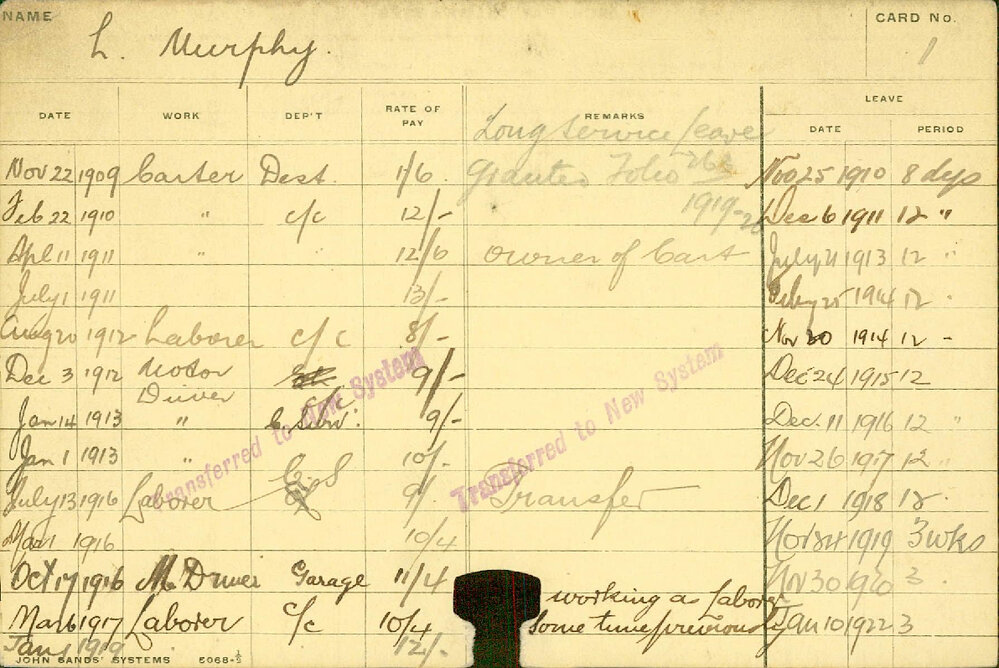 NAME
L. Murphy.
CARD No.
1
DATE WORK DEP'T RATE OF PAY REMARKS LEAVE
DATE PERIOD
Long service leave
Nov 22 1909 Carter Dest. 1/6. Granted Folio 263 Nov 25 1910 8 dys
1919-20
Feb 22 1910 " c/c 12/- Dec 6 1911 12 "
Apl 11 1911 " 12/6 owner of Cart July 21 1913 12 "
July 1 1911 13/- Feby 25 1914 12
Aug 20 1912 Laborer c/c 8/- Nov 20 1914 12 -
Dec 3 1912 Motor Driver c/c 9/- Dec 24 1915 12
Jan 14 1913 " C. Serv. 9/- Dec. 11 1916 12 "
Jan 1 1913 " 10/- Nov 26 1917 12 "
July 13 1916 Laborer 9/- Transfer Dec 1 1918 12.
Mar 1 1916 10/4 1919 3 wks
Oct 17 1916 M. Driver Garage 11/4 Nov 30 1920 3
working as laborer
Mar 6 1917 Laborer c/c 10/4 some time previously Jan 10 1922 3
Jan 1 1919 12/-
Transferred to New System
Transferred to New System
JOHN SANDS' SYSTEMS 5068-½